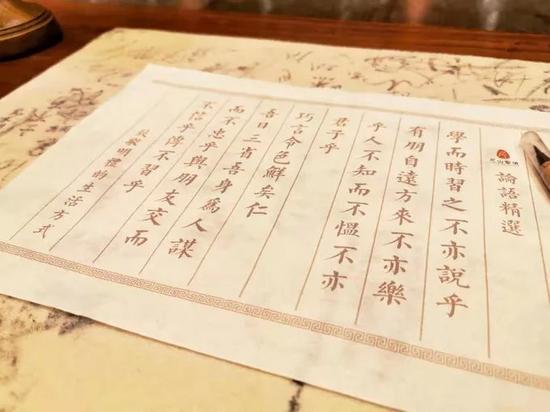 論語精選
學而時習之不亦說乎
有朋自遠方來不亦樂
乎人不知而不慍不亦
君子乎
巧言令色鮮矣仁
吾日三省吾身爲人謀
而不忠乎與朋友交而
不信乎傳不習乎
明禮的生活方式